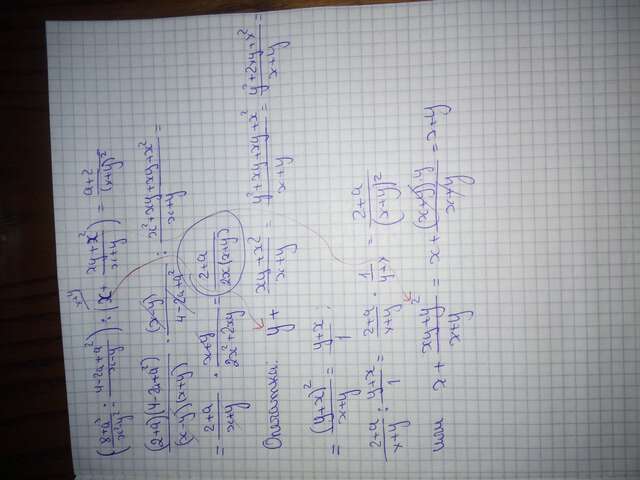 (8+a³/x²-y² : 4-2a+a²/x-y) : (x + xy+x²/x+y) = a+2/(x+y)²
(2+a)(4-2a+a²)/(x-y)(x+y) · (x-y)/4-2a+a² : x²+xy+xy+x²/x+y =
= 2+a/x+y · x+y/2x²+2xy = 2+a/2x(x+y)
Опечатка: y + xy+x²/x+y = y²+xy+xy+x²/x+y = y²+2xy+x²/x+y =
= (y+x)²/x+y = y+x/1 ;
2+a/x+y : y+x/1 = 2+a/x+y · 1/y+x = 2+a/(x+y)²
или x + xy+y²/x+y = x + (x+y)y/x+y = x+y